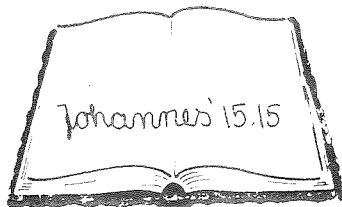 Johannes' 15.15